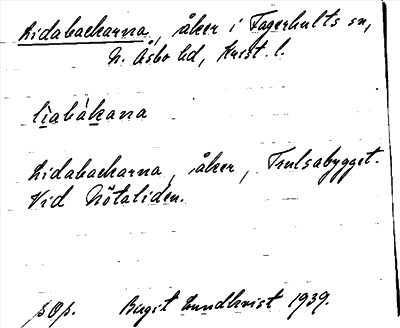 Lidabackarna, åker i Fagerhults sn,
N. Åsbo hd, Krist. l.
lìabàkana
Lidabackarna, åker, Trulsabygget.
Vid Nötaliden.
sOp. Birgit Lundkvist 1939.